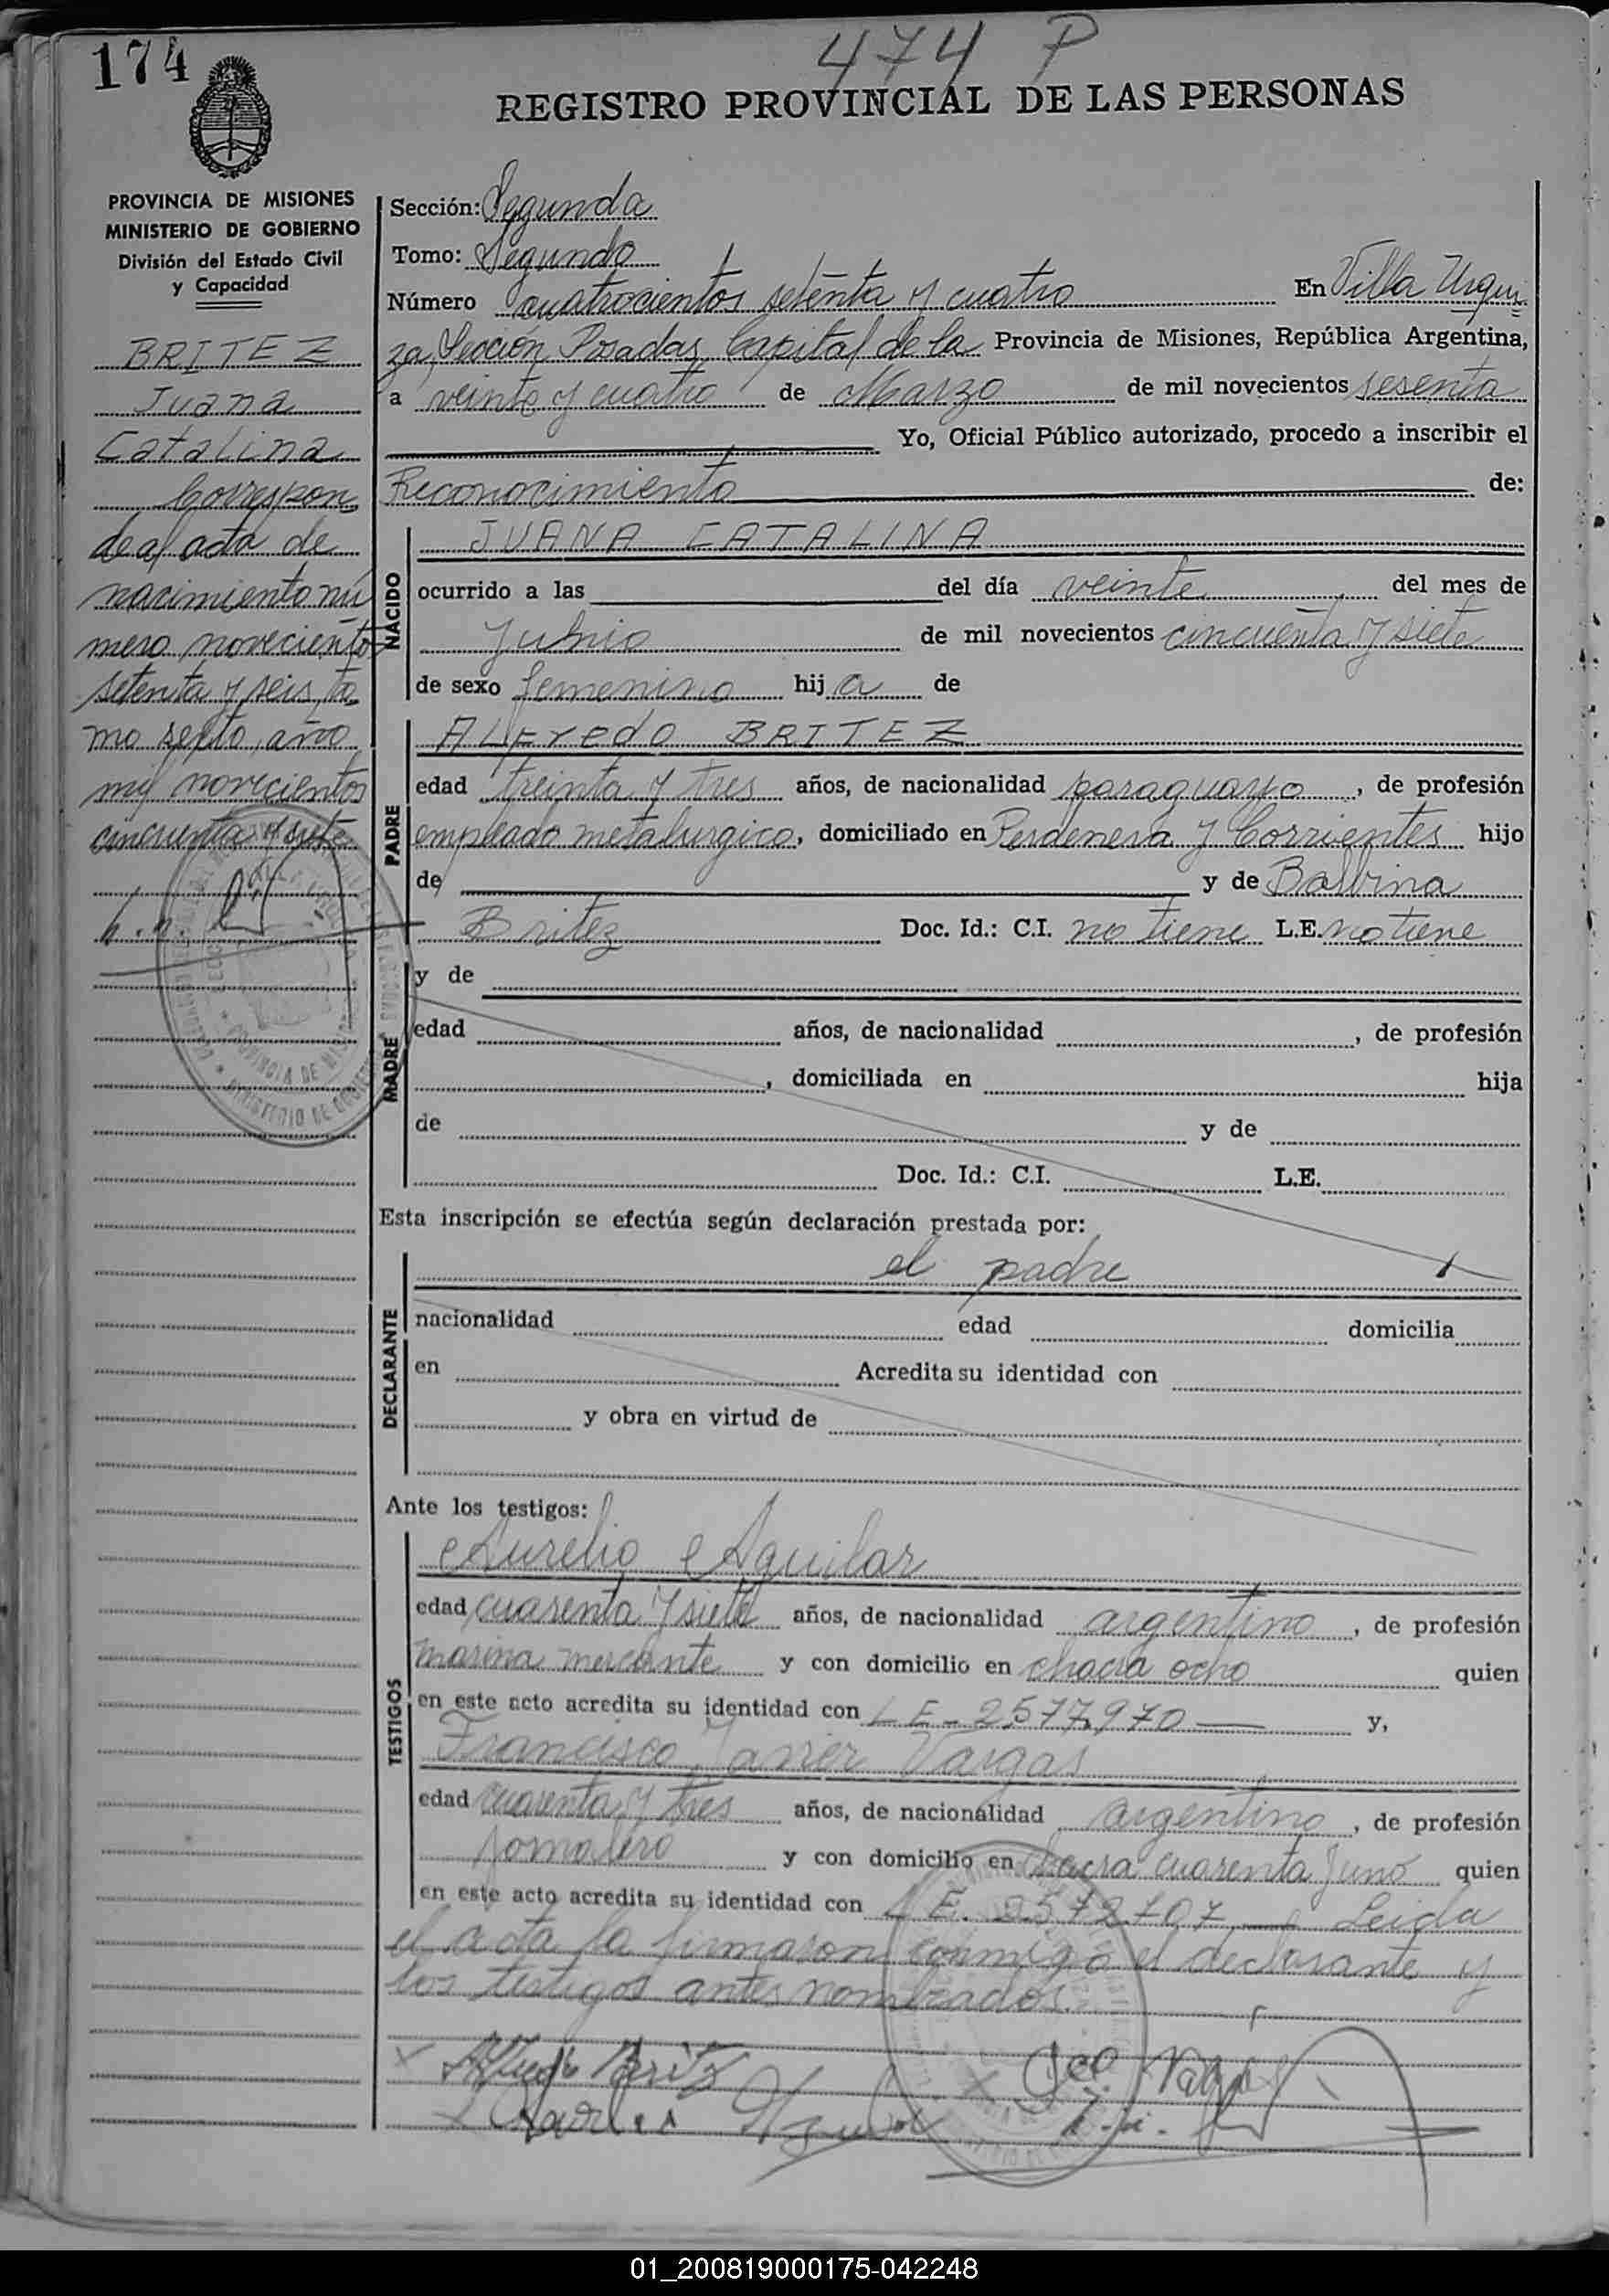 174
474 P
REGISTRO PROVINCIAL DE LAS PERSONAS
PROVINCIA DE MISIONES
MINISTERIO DE GOBIERNO
División del Estado Civil
y Capacidad
BRITEZ
Juana
Catalina
Correspon
de al acta de
nacimiento nú
mero novecientos
setenta y seis, to
mo sexto, año
mil novecientos
cincuenta y siete
Sección: Segunda
Tomo: Segundo
Número cuatrocientos setenta y cuatro En Villa Urqui
za, Sección Posadas, Capital de la Provincia de Misiones, República Argentina,
a veinte y cuatro de Marzo de mil novecientos sesenta
Yo, Oficial Público autorizado, procedo a inscribir el
Reconocimiento de:
NACIDO
JUANA CATALINA
ocurrido a las del día veinte del mes de
Junio de mil novecientos cincuenta y siete
de sexo femenino hija de
PADRE
Alfredo BRITEZ
edad treinta y tres años, de nacionalidad paraguayo, de profesión
empleado metalurgico, domiciliado en Perdenera y Corrientes hijo
de y de Balbina
Britez Doc. Id.: C.I. no tiene L.E. no tiene
MADRE
y de
edad años, de nacionalidad , de profesión
, domiciliada en hija
de y de
Doc. Id.: C.I. L.E.
Esta inscripción se efectúa según declaración prestada por:
DECLARANTE
el padre
nacionalidad edad domicilia
en Acredita su identidad con
y obra en virtud de
Ante los testigos:
TESTIGOS
Aurelio Aguilar
edad cuarenta y siete años, de nacionalidad argentino, de profesión
marina mercante y con domicilio en chacra ocho quien
en este acto acredita su identidad con LE-2577.970 y,
Francisco Javier Vargas
edad cuarenta y tres años, de nacionalidad argentino, de profesión
jornalero y con domicilio en chacra cuarenta y uno quien
en este acto acredita su identidad con L E. 2572707 Leida
el acta la firmaron conmigo el declarante y
los testigos antes nombrados.
01_200819000175-042248